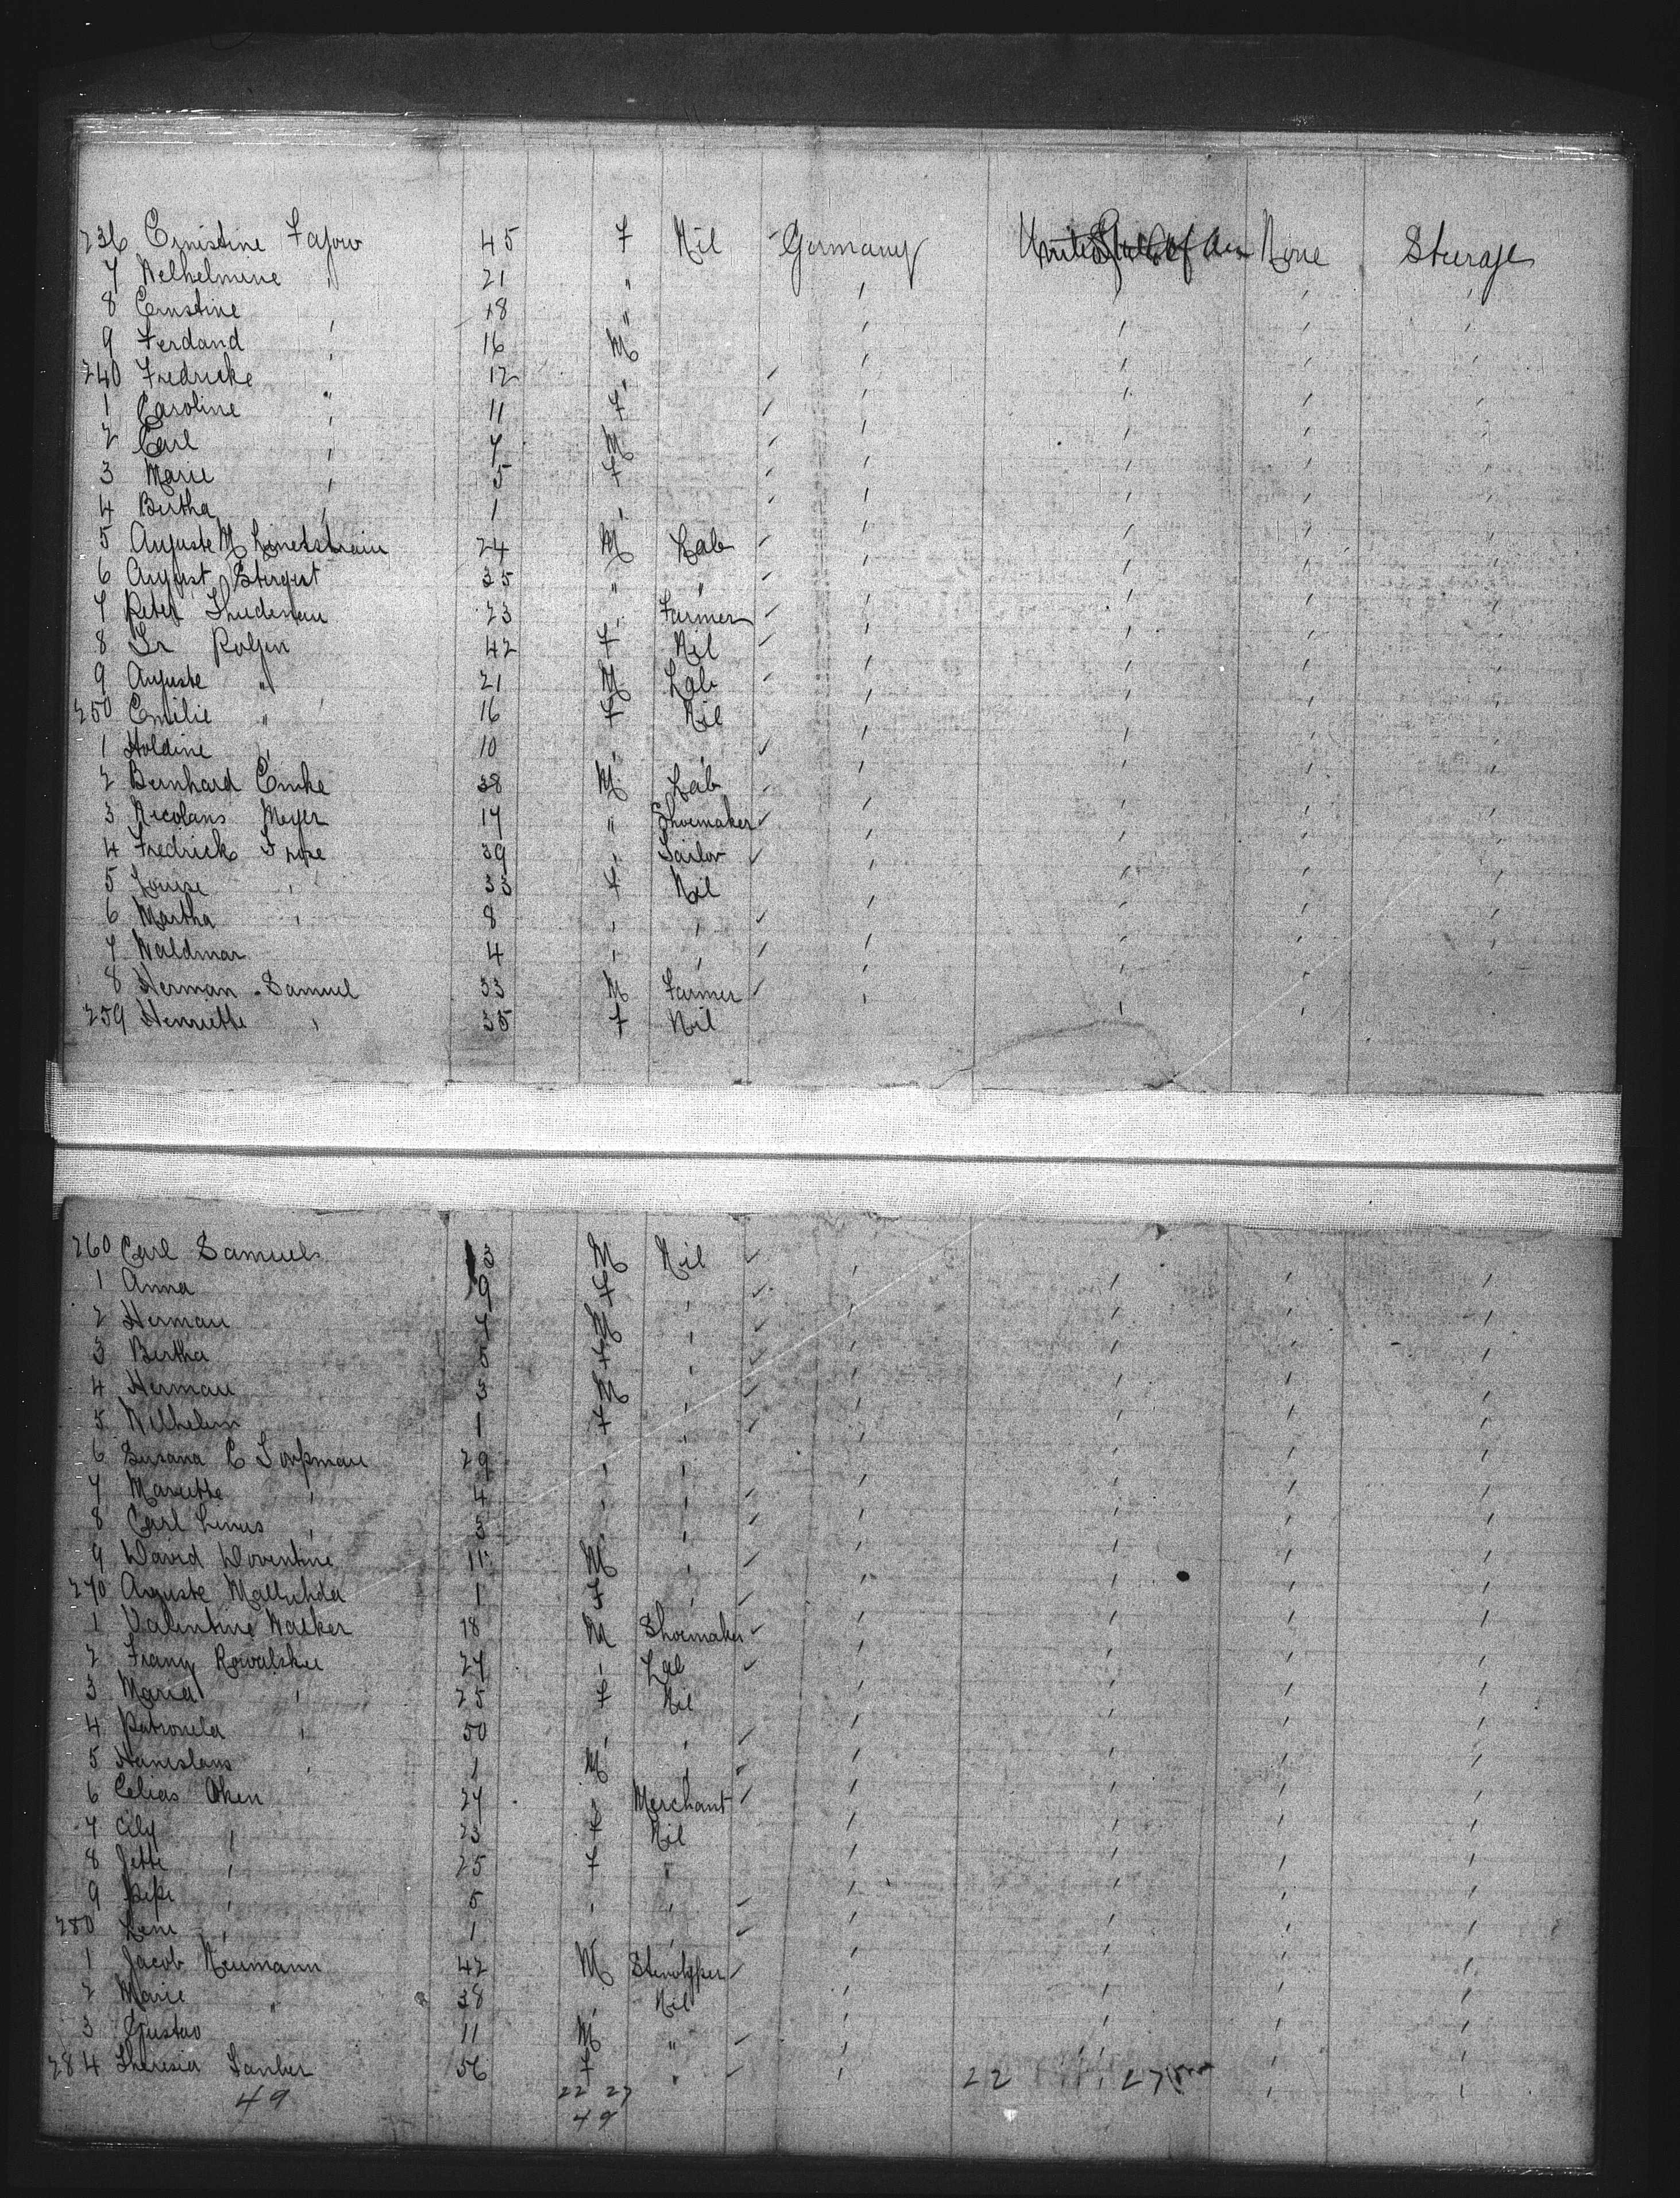 236 Ernistine Fafow 45 F Nil Germany United States of Am None Steerage
7 Welhelmine " 21 "
8 Ernstine " 18 "
9 Ferdand " 16 M
240 Fredricke " 12 "
1 Caroline " 11 F
2 Carl " 7 M
3 Marie " 5 F
4 Bertha " 1 "
5 Auguste M 24 M Lab
6 August 35 " "
7 Peter 23 " Farmer
8 42 F Nil
9 Auguste " 21 M Lab
250 Emilie " 16 F Nil
1 Holdine " 10 " "
2 Bernhard Emke 38 M Lab
3 Nicolaus Meyer 17 " Shoemaker
4 Fredrick Frose 39 "
5 Louise " 33 F Nil
6 Martha " 8 " "
7 Waldmar 4 " "
8 Herman Samuel 33 M Farmer
259 Henriette " 35 F Nil
260 Carl Samuels 13 M Nil
1 Anna 9 F "
2 Herman 7 M "
3 Bertha 5 F "
4 Herman 3 M "
5 Wilhelm 1 F "
6 Susana C 29 " "
7 Mariette " 4 " "
8 Carl Linus " 3 " "
9 David 11 M "
270 Auguste 1 F "
1 Valentine Walker 18 M Shoemaker
2 Franz Kowalskie 27 " Lab
3 Maria " 25 F Nil
4 Patronela " 50 " "
5 Stanislaus " 1 M "
6 Celias Oken 27 " Merchant
7 Cily " 23 F Nil
8 Jette " 25 F "
9 Pepi " 5 " "
280 Lene " 1 " "
1 Jacob Neumann 42 M Sterotyper
2 Marie " 38 " Nil
3 Gustav 11 M "
284 Theresia 56 F "
49 22 27 22 27
49